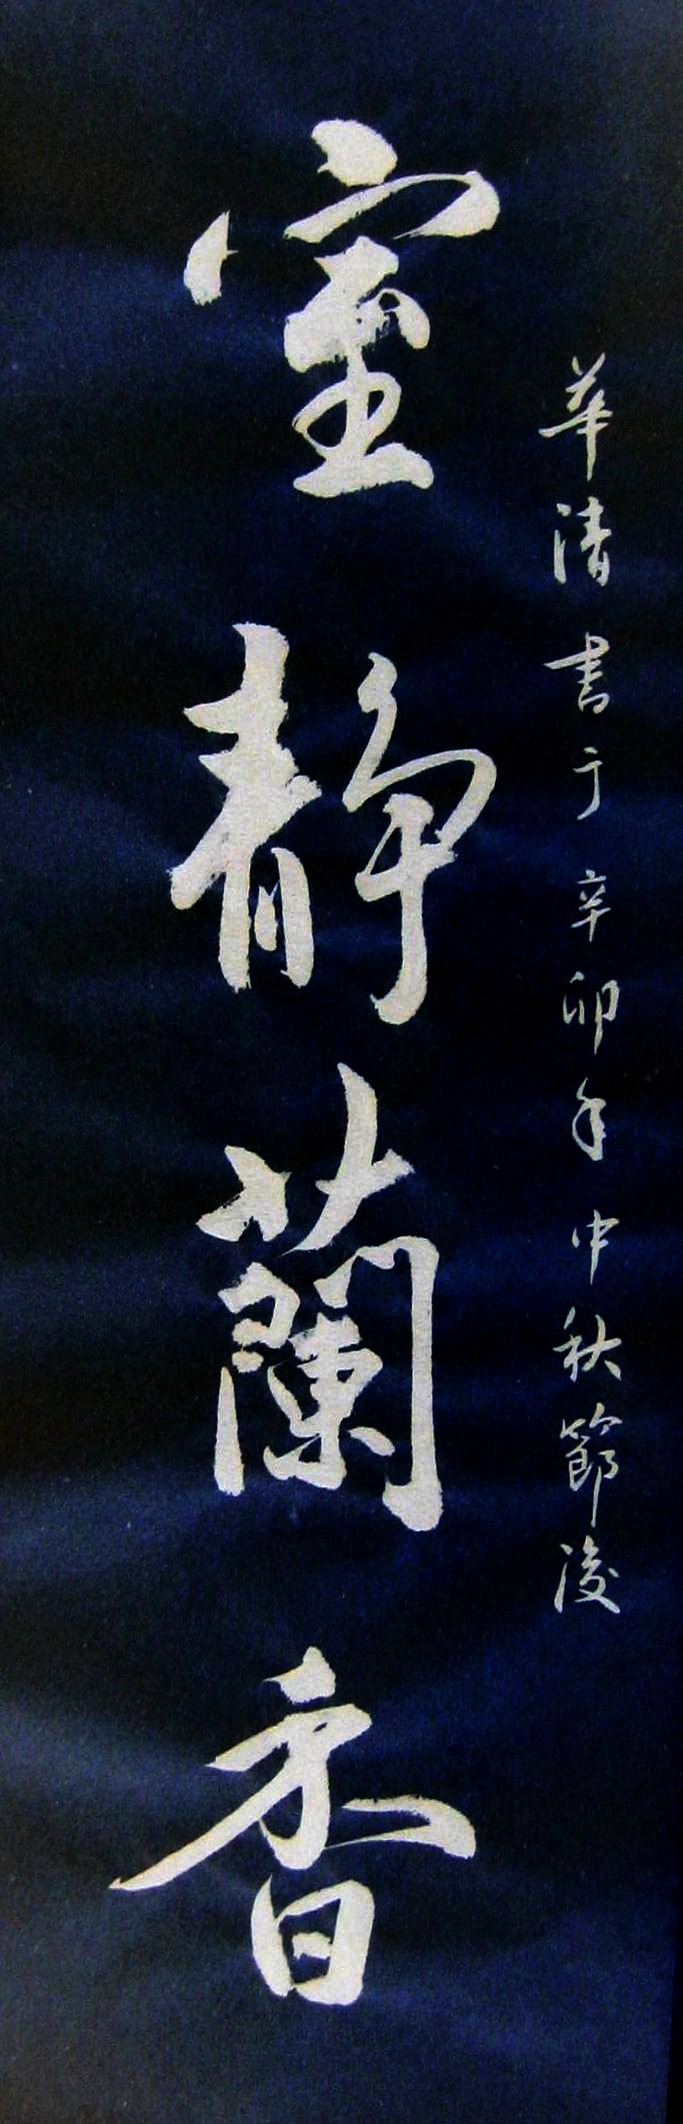 室靜蘭香
華清書于辛卯年中秋節後